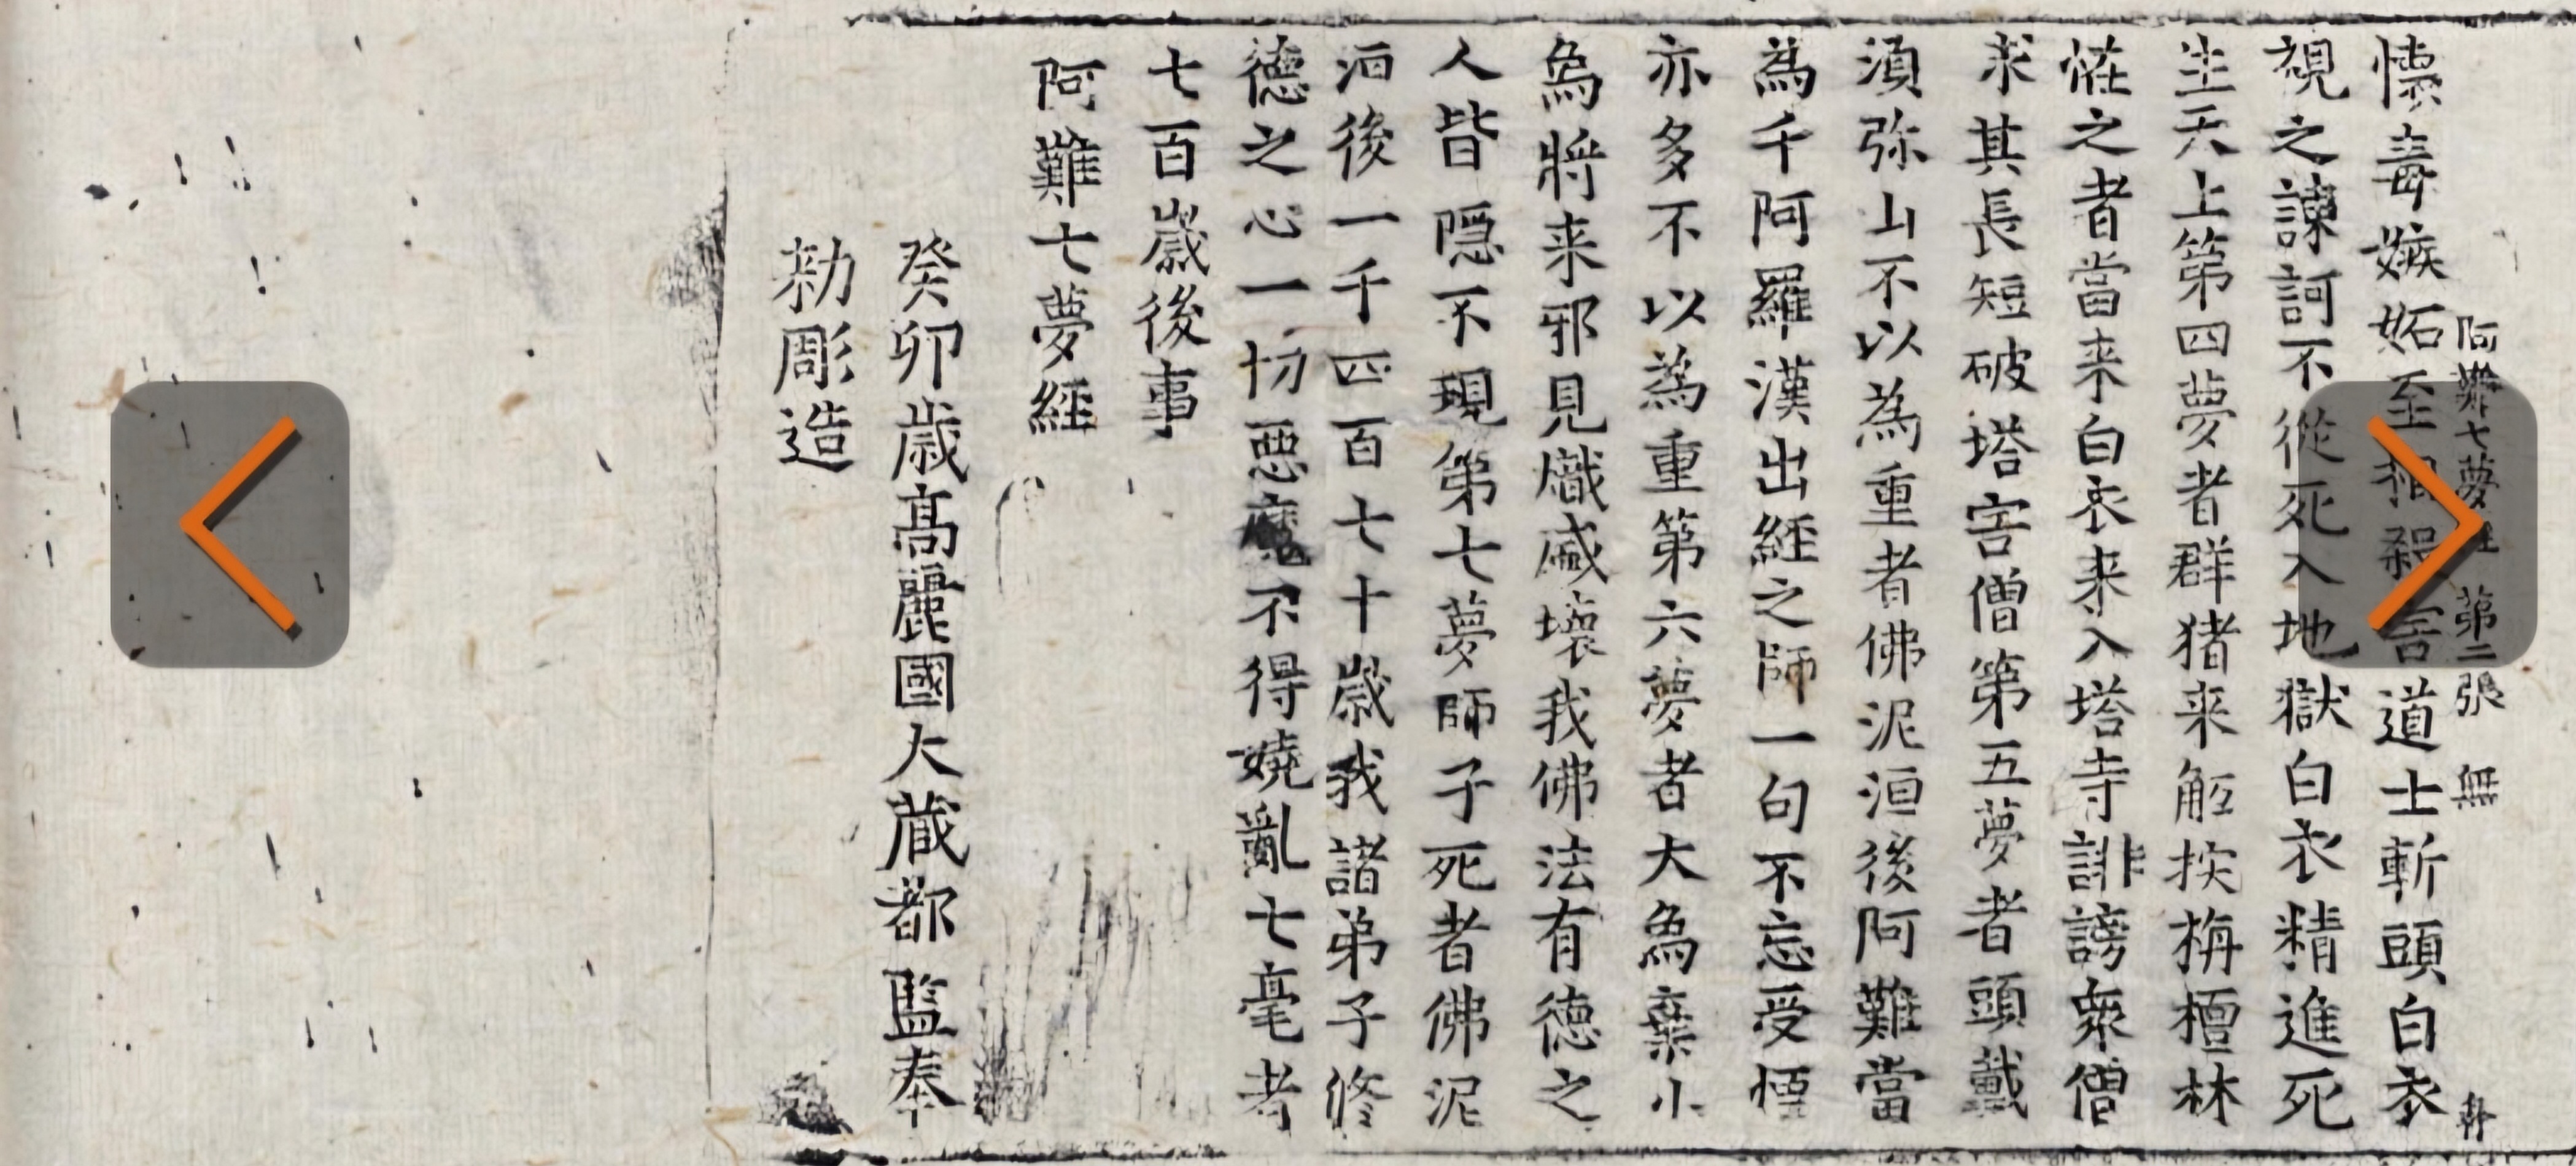 阿難七夢経 第二張 無
懐毒嫉妬至相殺害道士斬頭白衣
視之諫訶不從死入地獄白衣精進死
生天上第四夢者群猪来觝揬栴檀林
恠之者當来白衣来入塔寺誹謗衆僧
求其長短破塔害僧第五夢者頭戴
湏弥山不以為重者佛泥洹後阿難當
為千阿羅漢出経之師一句不忘受悟
亦多不以為重第六夢者大象棄小
象將来邪見熾盛壞我佛法有徳之
人皆隠不現第七夢師子死者佛泥
洹後一千四百七十歲我諸弟子修
徳之心一切悪魔不得嬈亂七毫者
七百歲後事
阿難七夢経
癸卯歳高麗國大藏都監奉
勑彫造